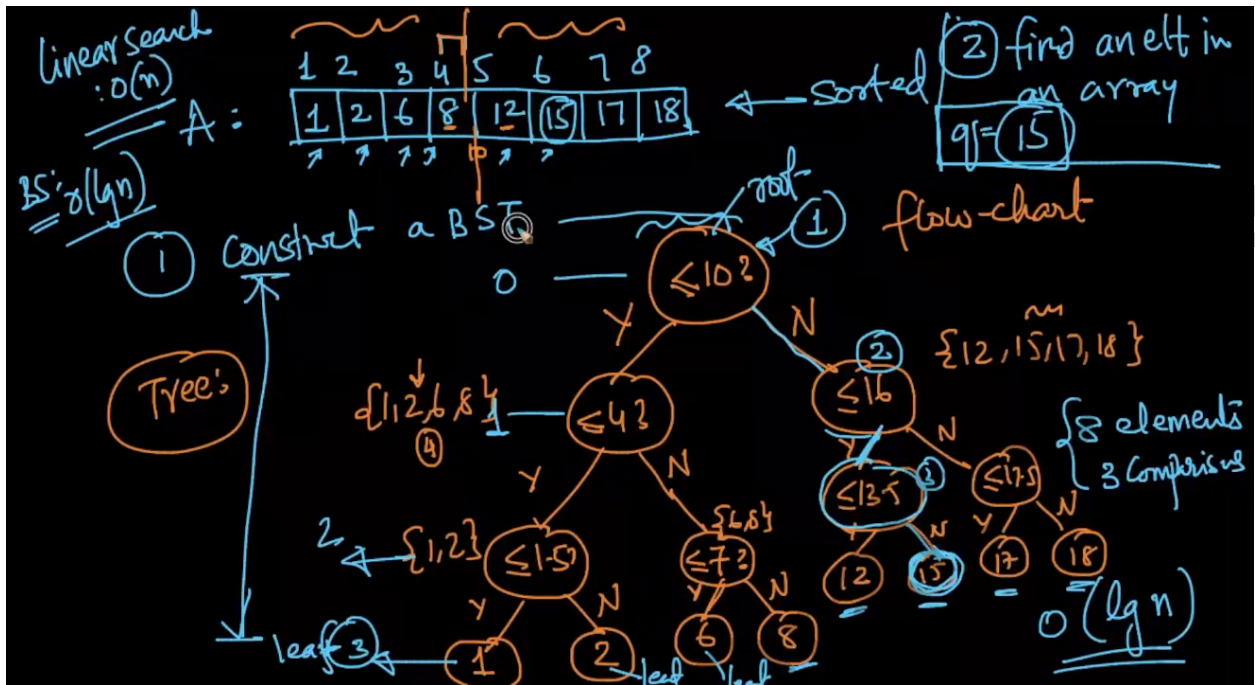 linear search
: O(n)
1 2 3 4 5 6 7 8
A : 1 2 6 8 12 15 17 18
← sorted
10
② find an elt in
an array
q = 15
BS: O(lg n)
① Construct a BST
root
①
flow-chart
0
≤10?
Y
N
Tree:
{1,2,6,8}
④
1
≤4?
②
≤16
{12,15,17,18}
{8 elements
3 Comparisons
Y
N
Y
N
≤13.5
③
≤17.5
2
{1,2}
≤1.5?
{6,8}
≤7?
Y
N
Y
N
Y
N
Y
N
12
15
17
18
leaf 3
1
2
leaf
6
leaf
8
O(lg n)